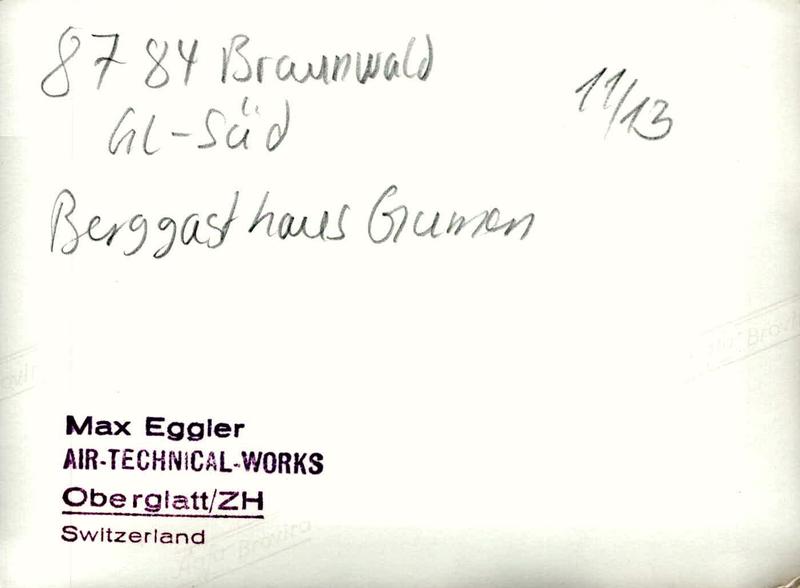 8784 Braunwald
11/13
GL-Süd
Berggasthaus Gumen
Agfa Brovira
Max Eggler
AIR-TECHNICAL-WORKS
Oberglatt/ZH
Switzerland
Agfa Brovira